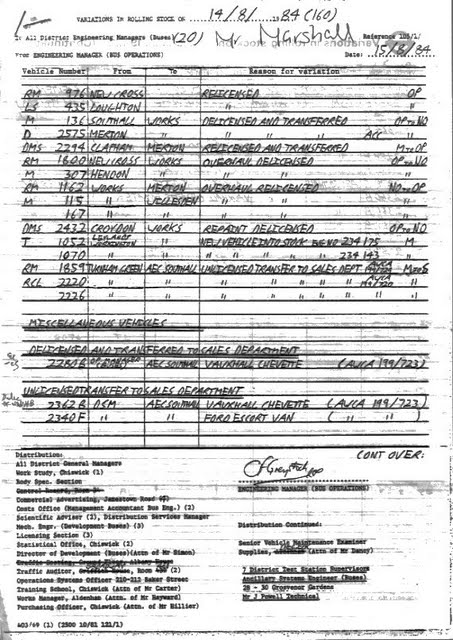 VARIATIONS IN ROLLING STOCK ON 14/8/1984 (160)
To: All District Engineering Managers (Buses) (20) Mr Marshall Reference 105/1/
From ENGINEERING MANAGER (BUS OPERATIONS) Date: 15/8/84
Vehicle Number From To Reason for variation
RM 976 NEW CROSS RELICENSED OP
LS 435 LOUGHTON " "
M 136 SOUTHALL WORKS DELICENSED AND TRANSFERRED OP to NO
D 2575 MERTON " " ACC "
DMS 2294 CLAPHAM MERTON RELICENSED AND TRANSFERRED M to OP
RM 1600 NEW CROSS WORKS OVERHAUL DELICENSED OP to NO
M 307 HENDON " " "
RM 1162 WORKS MERTON OVERHAUL RELICENSED NO to OP
M 115 " WILLESDEN " "
167 " " " "
DMS 2432 CROYDON WORKS REPAINT DELICENSED OP to NO
T 1052 LEYLAND WORKINGTON " NEW VEHICLE INTO STOCK ENG NO 234175 M
1070 " " " " " 234143 "
RM 1859 TURNHAM GREEN AEC SOUTHALL UNLICENSED TRANSFER TO SALES DEPT M to S
RCL 2220 " " " " " " AWCA 199/720 "
2226 " " " " " " " "
MISCELLANEOUS VEHICLES
DELICENSED AND TRANSFERRED TO SALES DEPARTMENT
2280 B AEC SOUTHALL VAUXHALL CHEVETTE (AWCA 199/723)
UNLICENSED TRANSFER TO SALES DEPARTMENT
2362 B DSM AEC SOUTHALL VAUXHALL CHEVETTE (AWCA 199/723)
2340 F " " FORD ESCORT VAN ( " " )
CONT OVER:
Distribution:
All District General Managers
Work Study, Chiswick (1)
Body Spec. Section
ENGINEERING MANAGER (BUS OPERATIONS)
Commercial Advertising, Jamestown Road
Costs Office (Management Accountant Bus Eng.) (2)
Scientific Adviser (2), Distribution Services Manager
Mech. Engr. (Development Buses) (3)
Distribution Continued:
Licensing Section (3)
Statistical Office, Chiswick (2)
Director of Development (Buses)(Attn of Mr Simon)
Senior Vehicle Maintenance Examiner
Supplies, (Attn of Mr Dancy)
Traffic Auditor, Room (2)
Operations Systems Officer 210-212 Baker Street
Training School, Chiswick (Attn of Mr Carter)
Works Manager, Aldenham (Attn of Mr Hayward)
Purchasing Officer, Chiswick (Attn of Mr Hillier)
7 District Test Station Supervisors
Ancillary Systems Engineer (Buses)
28 - 30 Grosvenor Gardens
Mr J Powell Technical
403/69 (1) (2500 10/81 121/1)